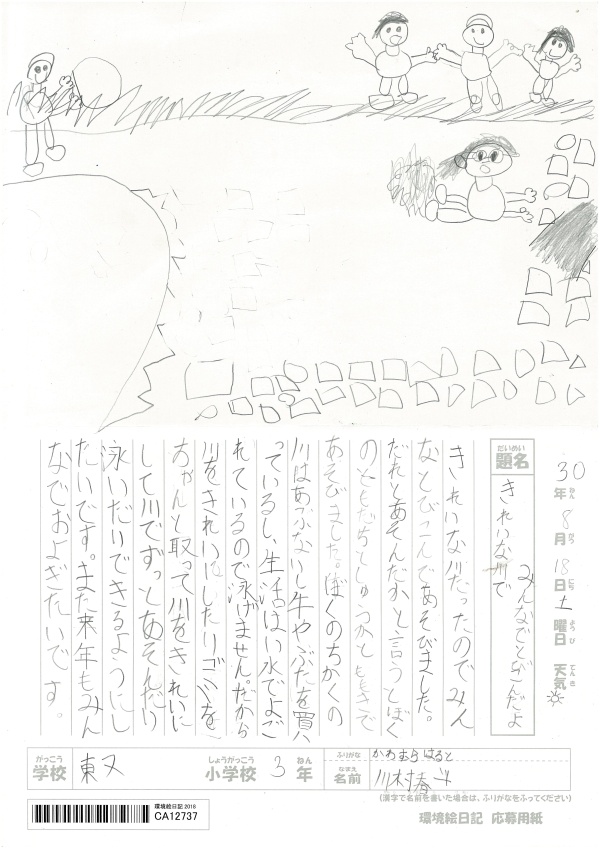 30年ねん8月がつ18日にち土曜日ようび 天気てんき
だいめい
題名
きれいな川で
みんなでとびんだよ
きれいな川だったのでみん
なとびこんであそびました。
だれとあそんだかと言うとぼく
のともだちとしゅうかとももきで
あそびました。ぼくのちかくの
川はあぶないし牛やぶたを買
っているし、生活はい水でよご
れているので泳げません。だから
川をきれいにしたりゴミを
ちゃんと取って川をきれいに
して川でずっとあそんだり
泳いだりできるようにし
たいです。また来年もみん
なでおよぎたいです。
がっこう
学校
東又
しょうがっこう
小学校
3
ねん
年
ふりがな
かわむらはると
なまえ
名前
川村春斗
(漢字で名前を書いた場合は、ふりがなをふってください)
環境絵日記 2018
CA12737
環境絵日記 応募用紙